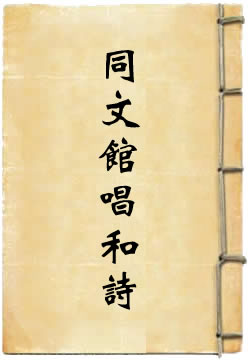 同文館唱和詩